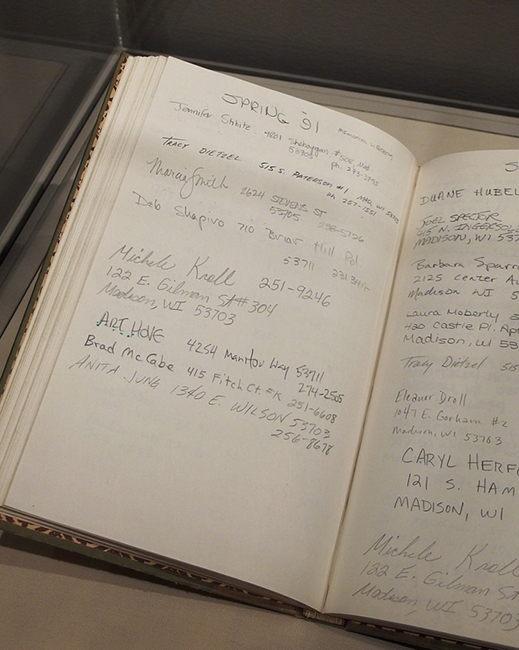 SPRING '91
Jennifer 4801 Sheboygan, #508, Mad
53705 ph. 273-
TRACY DIETZEL 515 S. PATERSON #1 MAD, WI 53703
ph 257-1551
Marcia Smith 2624 STEVENS ST
53705 238-5726
Deb Shapiro 710 Briar Hill Rd
53711 231-
Michele Kroll 251-9246
122 E. Gilman St #304
Madison, WI 53703
ART HOVE 4254 Manitou Way 53711
274-2505
Brad McCabe 415 Fitch Ct. #K 251-6608
ANITA JUNG 1340 E. WILSON 53703
256-8678
S
DUANE HUBEL
JOEL SPECTOR
N. INGERSOLL
MADISON, WI 537
Barbara Sparr
2125 Center A
Madison WI 5
Laura Moberly
420 Castle Pl. Ap
Madison, WI 53
Tracy Dietzel 515
Eleanor Droll
1047 E. Gorham #2
Madison, WI 53703
CARYL HERF
121 S. HAM
MADISON, WI
Michele Kroll
122 E. Gilman St
Madison, WI 53703